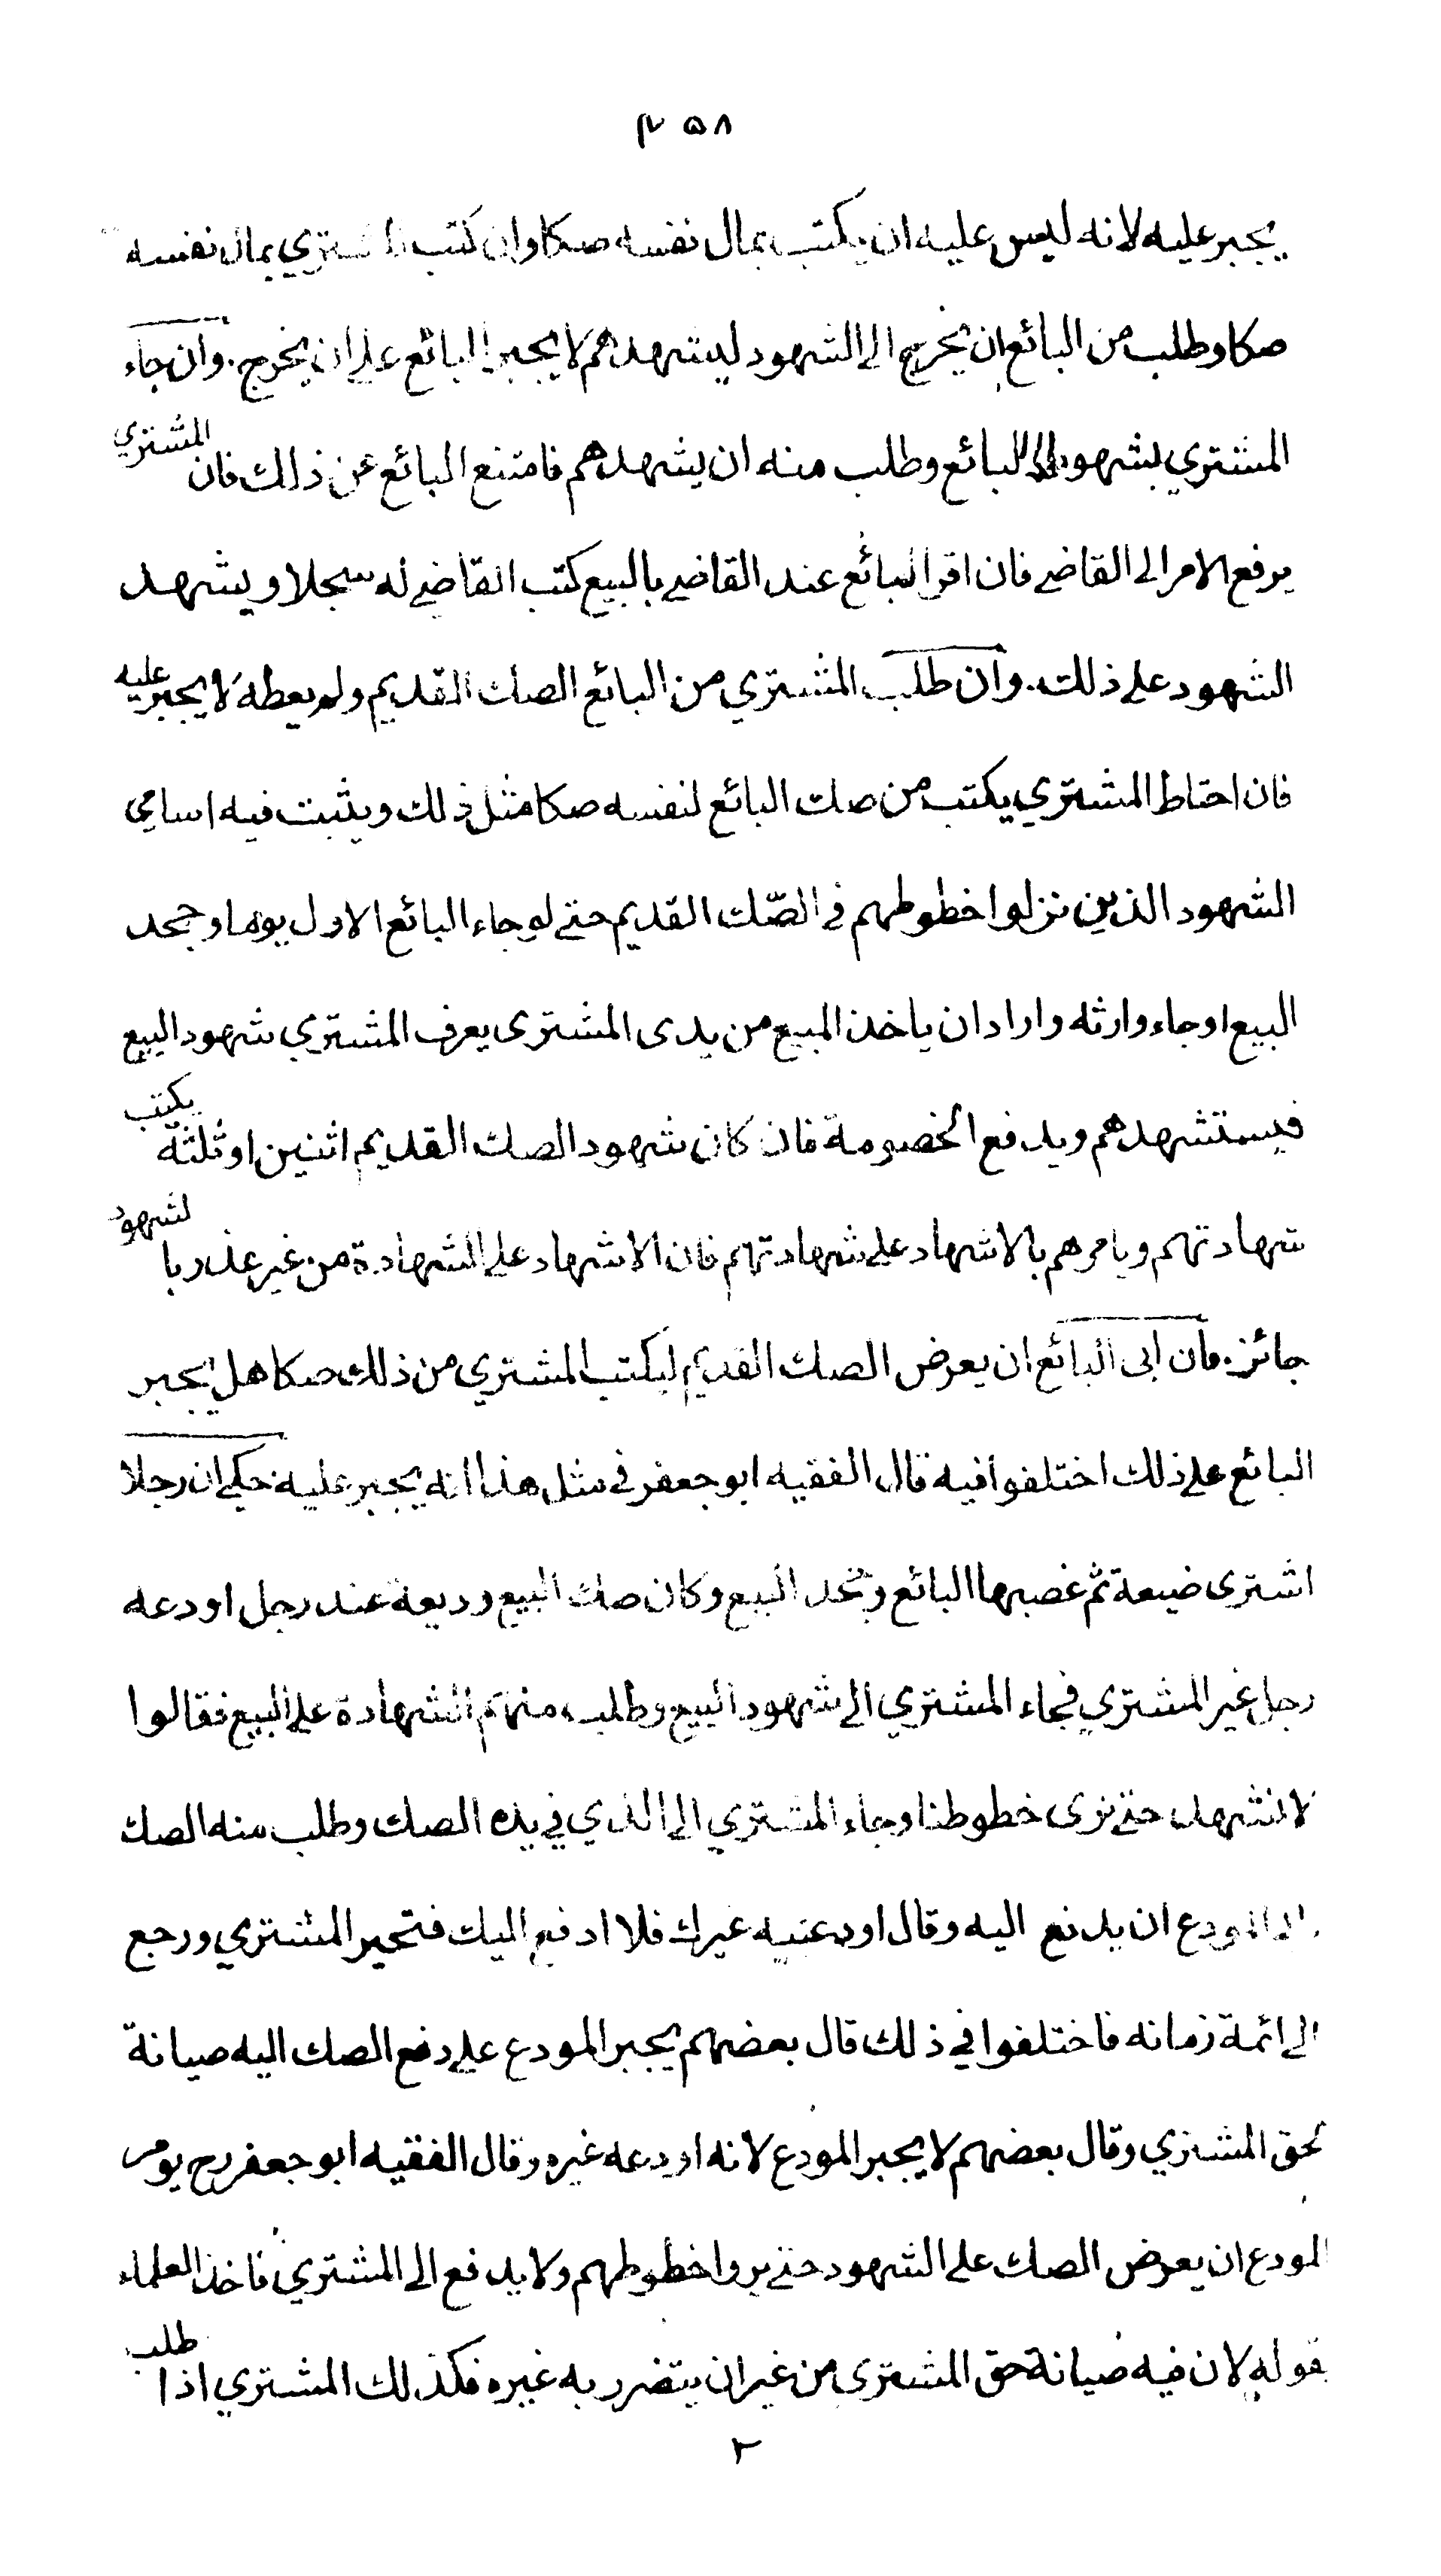 ٣٥٨
يجبر عليه لانه ليس عليه ان يكتب بمال نفسه صكا وان كتب المشتري بمال نفسه
صكا وطلب من البائع ان يخرج الى الشهود ليشهدهم لا يجبر البائع على ان يخرج. وان جاء
المشتري بشهود الى البائع وطلب منه ان يشهدهم فامتنع البائع عن ذلك فان المشتري
يرفع الامر الى القاضي فان اقر البائع عند القاضي بالبيع كتب القاضي له سجلا ويشهد
الشهود على ذلك. وان طلب المشتري من البائع الصك القديم ولم يعطه لا يجبر عليه
فان احتاط المشتري يكتب من صك البائع لنفسه صكا مثل ذلك ويثبت فيه اسامي
الشهود الذين نزلوا خطوطهم في الصّك القديم حتى لو جاء البائع الاول يوما وجحد
البيع او جاء وارثه واراد ان ياخذ المبيع من يدى المشترى يعرف المشتري شهود البيع
فيستشهدهم ويدفع الخصومة فان كان شهود الصك القديم اثنين او ثلثة يكتب
شهادتهم ويامرهم بالاشهاد على شهادتهم فان الاشهاد على الشهادة من غير عذر با لشهود
جائز. فان ابى البائع ان يعرض الصك القديم ليكتب المشتري من ذلك صكا هل يجبر
البائع على ذلك اختلفوا فيه قال الفقيه ابو جعفر في مثل هذا انه يجبر عليه حكي ان رجلا
اشترى ضيعة ثم غصبها البائع وجحد البيع وكان صك البيع وديعة عند رجل اودعه
رجل غير المشتري فجاء المشتري الى شهود البيع وطلب منهم الشهادة على البيع فقالوا
لا نشهد حتى نرى خطوطنا وجاء المشتري الى الذي في يده الصك وطلب منه الصك
المودع ان يدفع اليه وقال اودعنيه غيرك فلا ادفع اليك فتحير المشتري ورجع
الى ائمة زمانه فاختلفوا في ذلك قال بعضهم يجبر المودع على دفع الصك اليه صيانة
لحق المشتري وقال بعضهم لا يجبر المودع لانه اودعه غيره وقال الفقيه ابو جعفر رح يومر
المودع ان يعرض الصك على الشهود حتى يروا خطوطهم ولا يدفع الى المشتري فاخذ العلماء
بقوله لان فيه صيانة حق المشترى من غير ان يتضرر به غيره فكذلك المشتري اذا طلب
٢